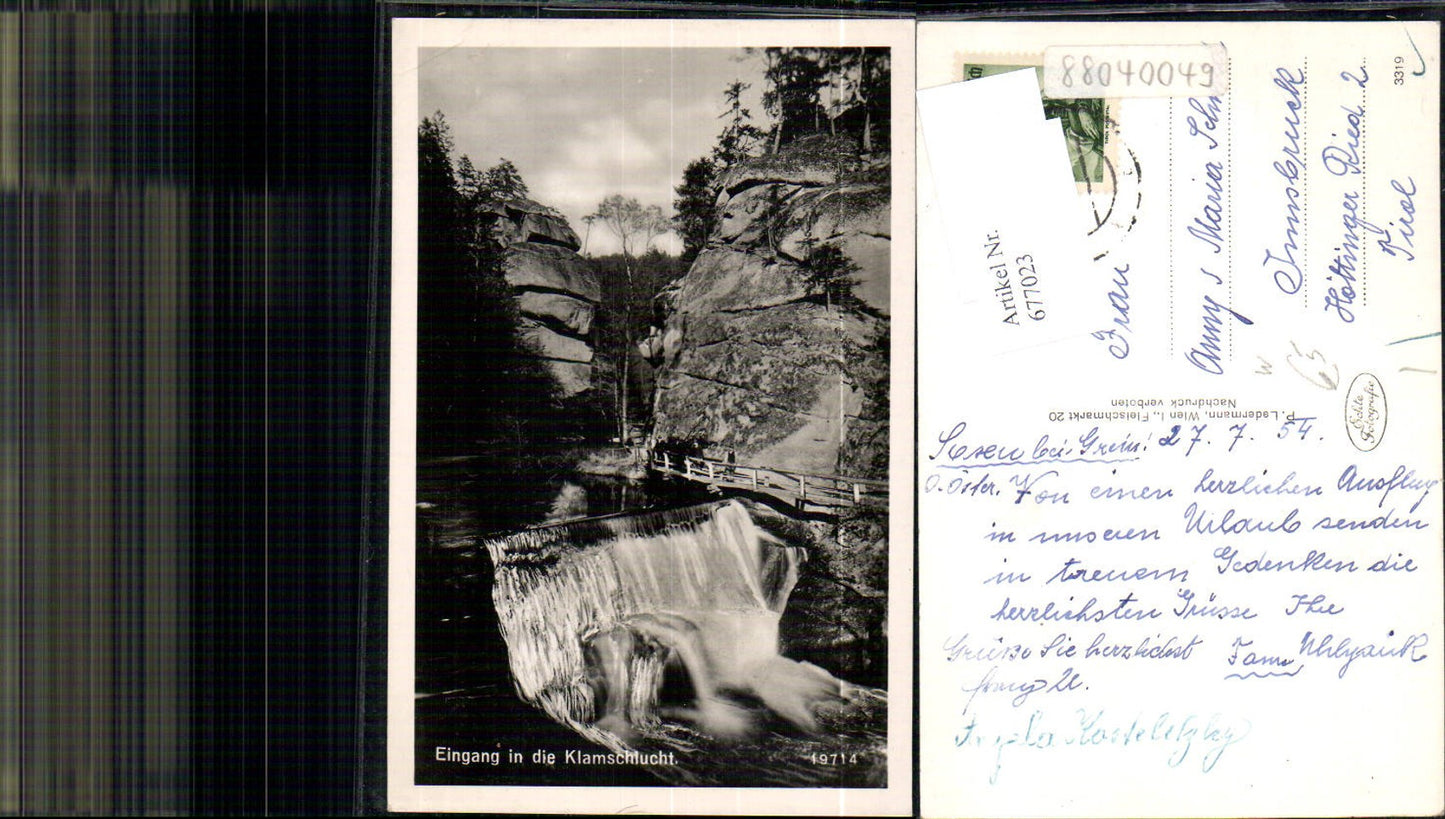 Eingang in die Klamschlucht.
19714
88040049
Artikel Nr.
677023
3319
Frau
Anny s Maria
Innsbruck
Höttinger Ried 2
Tirol
P. Ladermann, Wien I., Fleischmarkt 20
Nachdruck verboten
Echte
Fotografie
W
65
Saxen bei Grein! 27. 7. 54.
O. Öster. Von einen herzlichen Ausflug
in unseren Urlaub senden
in treuem Gedenken die
herzlichsten Grüsse Ihre
Grüße Sie herzlichst Fam.